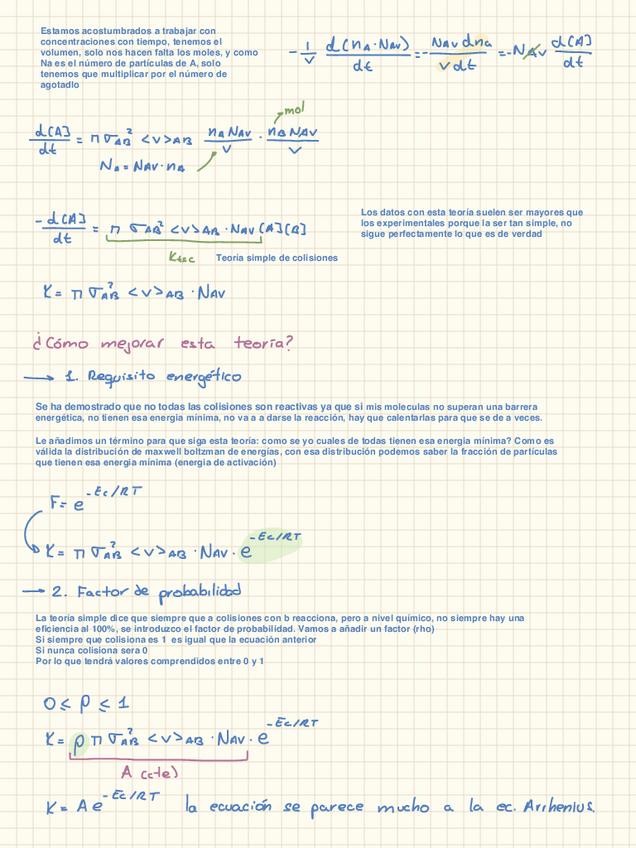 Estamos acostumbrados a trabajar con
concentraciones con tiempo, tenemos el
volumen, solo nos hacen falta los moles, y como
Na es el número de partículas de A, solo
tenemos que multiplicar por el número de
agotadlo
-1/V d(nA·NAV)/dt = -NAV dnA/V dt = -NAV d[A]/dt
mol
d[A]/dt = π σAB² <v>AB nA NAV/V · nB NAV/V
NA = NAV·nA
-d[A]/dt = π σAB² <v>AB · NAV [A][B]
Los datos con esta teoría suelen ser mayores que
los experimentales porque la ser tan simple, no
sigue perfectamente lo que es de verdad
Ktsc Teoría simple de colisiones
K = π σAB² <v>AB · NAV
¿Cómo mejorar esta teoría?
→ 1. Requisito energético
Se ha demostrado que no todas las colisiones son reactivas ya que si mis moleculas no superan una barrera
energética, no tienen esa energia mínima, no va a a darse la reacción, hay que calentarlas para que se de a veces.
Le añadimos un término para que siga esta teoría: como se yo cuales de todas tienen esa energia mínima? Como es
válida la distribución de maxwell boltzman de energías, con esa distribución podemos saber la fracción de partículas
que tienen esa energia mínima (energia de activación)
F = e^-Ec/RT
K = π σAB² <v>AB · NAV · e^-Ec/RT
→ 2. Factor de probabilidad
La teoría simple dice que siempre que a colisiones con b reacciona, pero a nivel químico, no siempre hay una
eficiencia al 100%, se introduzco el factor de probabilidad. Vamos a añadir un factor (rho)
Si siempre que colisiona es 1 es igual que la ecuación anterior
Si nunca colisiona sera 0
Por lo que tendrá valores comprendidos entre 0 y 1
0 ≤ ρ ≤ 1
K = ρ π σAB² <v>AB · NAV · e^-Ec/RT
A (cte)
K = A e^-Ec/RT la ecuación se parece mucho a la ec. Arrhenius.